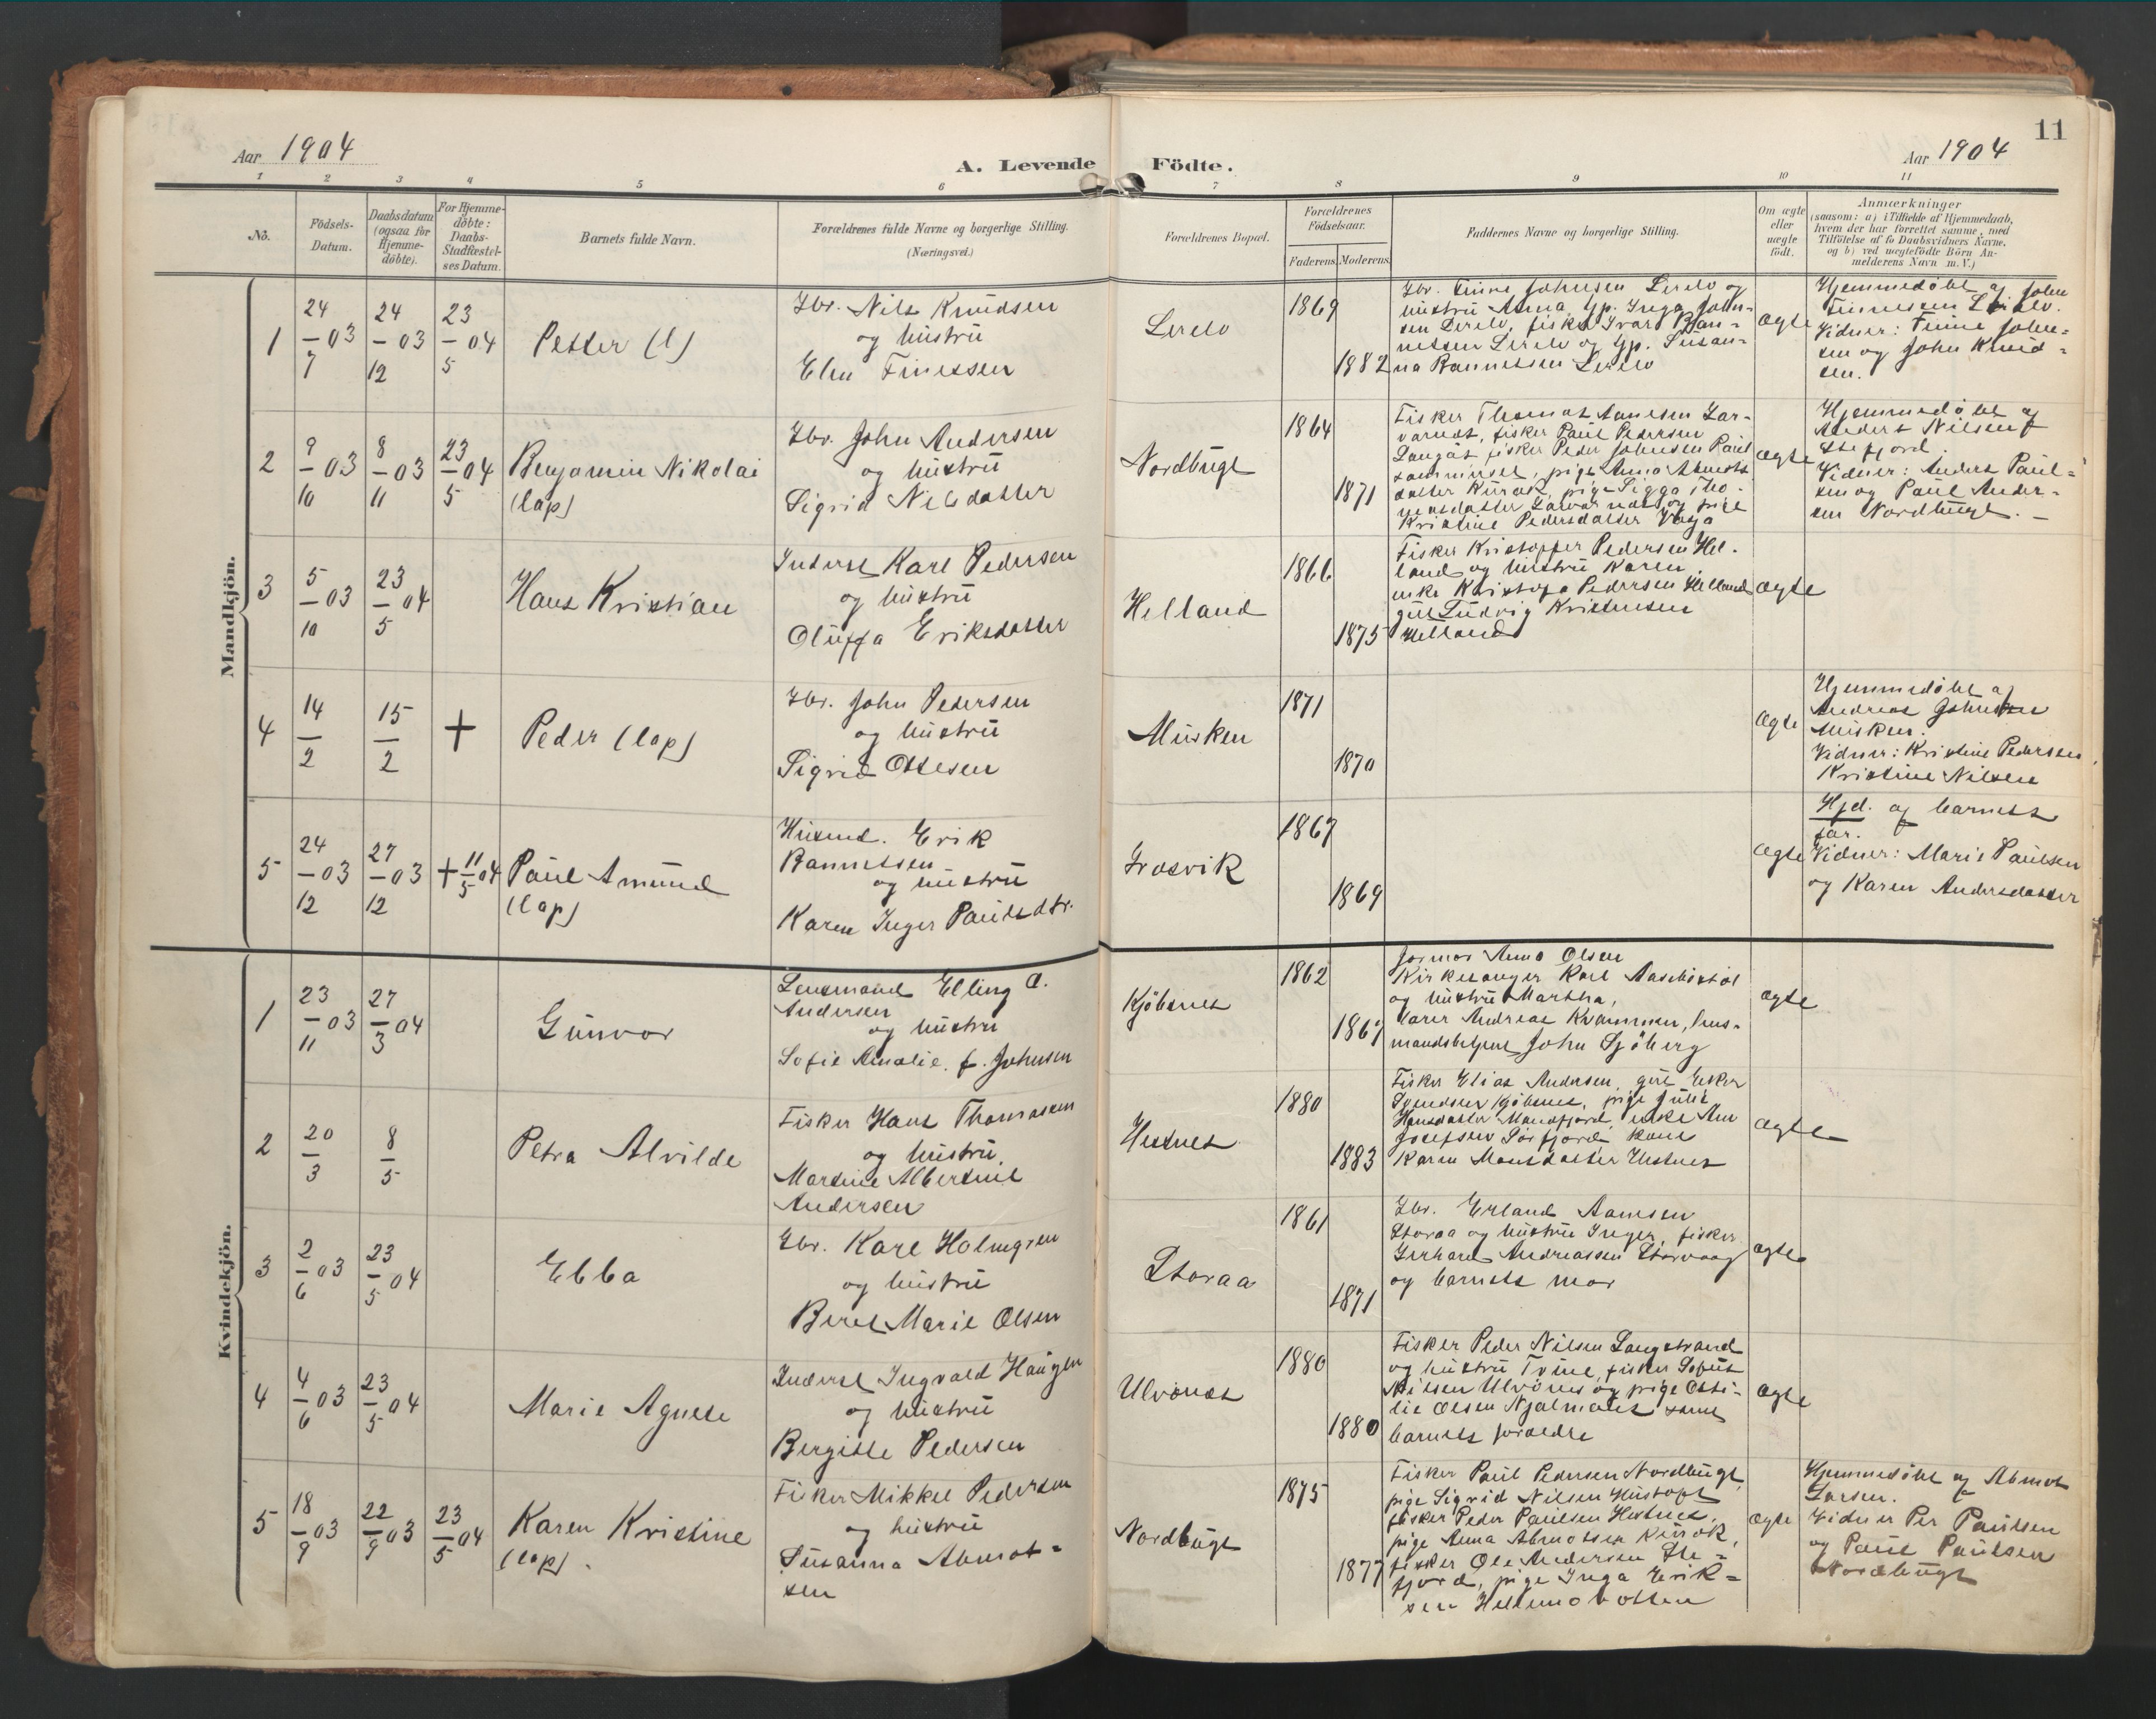 11
Aar 1904
A. Levende Födte.
Aar 1904
1 2 3 4 5 6 7 8 9 10 11
No.
Födsels-
Datum.
Daabsdatum
(ogsaa for
Hjemme-
döbte).
For Hjemme-
döbte:
Daabs-
Stadfæstel-
ses Datum.
Barnets fulde Navn.
Forældrenes fulde Navne og borgerlige Stilling.
(Næringsvei.)
Forældrenes Bopæl.
Forældrenes
Födselsaar.
Faderens. Moderens.
Faddernes Navne og borgerlige Stilling.
Om ægte
eller
uægte
födt.
Anmærkninger
(saasom: a) i Tilfælde af Hjemmedaab,
hvem der har forrettet samme, med
Tilföielse af to Daabsvidners Navne,
og b) ved uægtefödte Börn An-
melderens Navn m. V.)
Mandkjön.
1
24/7 03
24/12 03
23/5 04
Petter (l)
Gbr. Nils Knudsen
og hustru
Elen Finessen
1869
1882
Gbr. Finne Johnsen
hustru Anna, Gp. Inga John-
sen fisker Ivar Ran-
nessen og Gp. Susan-
na Rannessen
ægte
Hjemmedöbt af John
Finnessen
Vidner: Finne John-
sen og John Knud-
sen.
2
9/10 03
8/11 03
23/5 04
Benjamin Nikolai
(lap)
Gbr. John Andersen
og hustru
Sigrid Nilsdatter
Nordbugt
1864
1871
Fisker Thomas Amesen
fisker Paul Pedersen
fisker Peder Johnsen
pige Anna
datter pige Sigga Tho-
masdatter og pige
Kristine Pedersdatter
ægte
Hjemmedöbt af
Anders Nilsen
Stefjord.
Vidner: Anders Paul-
sen og Paul Ander-
sen Nordbugt. –
3
5/10 03
23/5 04
Hans Kristian
Inderst Karl Pedersen
og hustru
Oluffa Eriksdatter
Helland
1866
1875
Fisker Kristoffer Pedersen Hel-
land og hustru Karen,
enke Pedersen Helland
gut Ludvig Kristensen
Helland
ægte
4
14/2
15/2
+
Peder (lap)
Gbr. John Pedersen
og hustru
Sigrid Ottesen
Musken
1871
1870
ægte
Hjemmedöbt af
Andreas Johnsen
Musken.
Vidner: Kristine Pedersen,
Kristine Nilsen
5
24/12 03
27/12 03
+ 11/5 04
Paul Amund
(lap)
Husmd. Erik
Rannessen
og hustru
Karen Inger Paulsdtr.
Grosvik
1867
1869
ægte
Hjd. af barnets
far.
Vidner: Marie Paulsen
og Karen Andersdatter
Kvindekjön.
1
23/11 03
27/3 04
Gunvor
Lensmand Elling A.
Andersen
og hustru
Sofie Amalie f. Johnsen
Kjöbsnes
1862
1867
Jormor Anna Olsen
Kirkesanger Karl
og hustru Martha,
Andreas Kvammen, lens-
mandsbetjent John Sjöberg
ægte
2
20/3
8/5
Petra Alvilde
Fisker Hans Thomassen
og hustru
Martine Albertine
Andersen
Hestnes
1880
1883
Fisker Elias Andersen, gut
Svendsen Kjöbsnes, pige Julie
Hansdatter Mandfjord, enke
Josefsen Sörfjord, kone
Karen Monsdatter Hestnes
ægte
3
2/6 03
23/5 04
Ebba
Gbr. Karl Holmgren
og hustru
Beret Marie Olsen
Storaa
1861
1871
Gbr. Erland
Storaa og hustru Inger, fisker
Gerhard Andreassen Storvaag
og barnets mor
ægte
4
4/6 03
23/5 04
Marie Agnete
Inderst Ingvald Haugen
og hustru
Bergitte Pedersen
Ulvönes
1880
1880
Fisker Peder Nilsen Langstrand
og hustru Trine, fisker Sofus
Nilsen Ulvönes og pige Otti-
lie Olsen samt
barnets forældre
ægte
5
18/9 03
22/9 03
23/5 04
Karen Kristine
(lap).
Fisker Mikkel Pedersen
og hustru
Susanna Abmot-
sen
Nordbugt
1875
1877
Fisker Paul Pedersen Nordbugt,
pige Sigrid Nilsen
fisker Peder Paulsen Hestnes,
pige Anna Abmotsen
fisker Ole Andersen Ste-
fjord, pige Inga Erik-
sen Hellemobotten
ægte
Hjemmedöbt af Abmot
Larsen.
Vidner Per Paulsen
og Paul Paulsen
Nordbugt